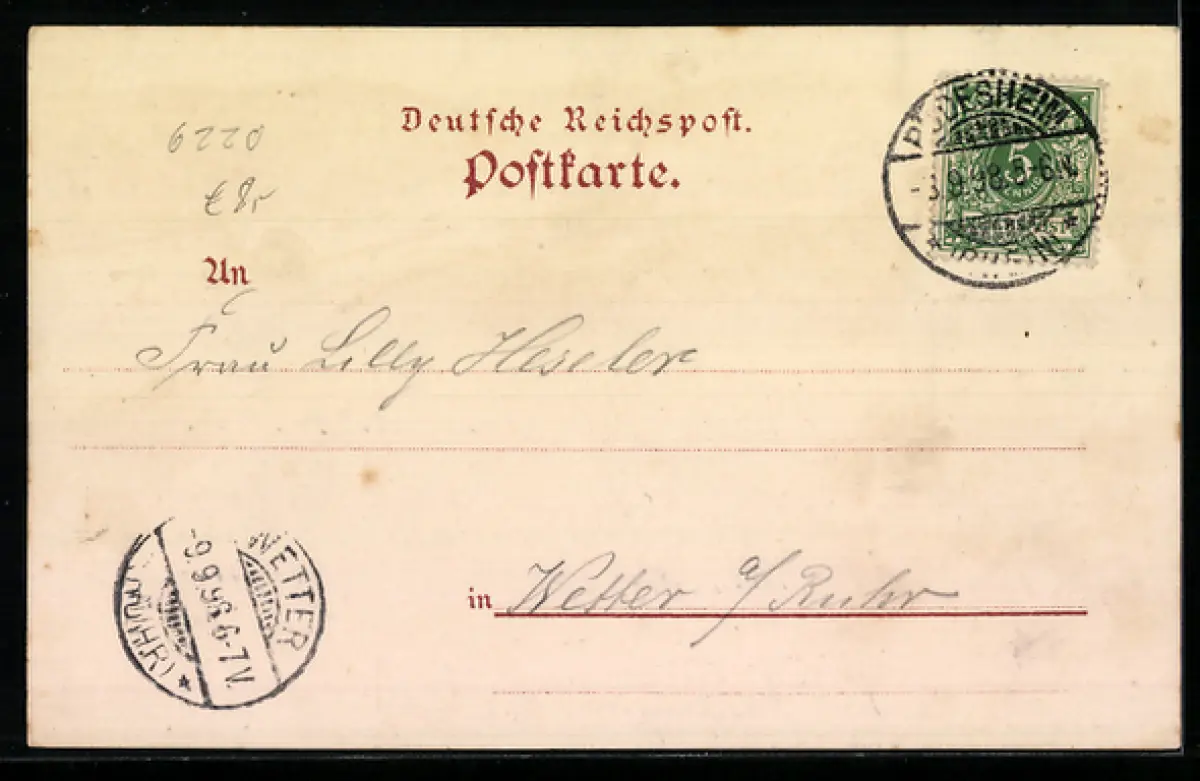 6220
€ 8,-
Deutsche Reichspost.
Postkarte.
RÜDESHEIM
5
9.98. 5-6N.
* (RHEIN) *
An
Frau Lilly Heseler
in Wetter a/ Ruhr
WETTER
9.9.98 6-7V.
(RUHR) *